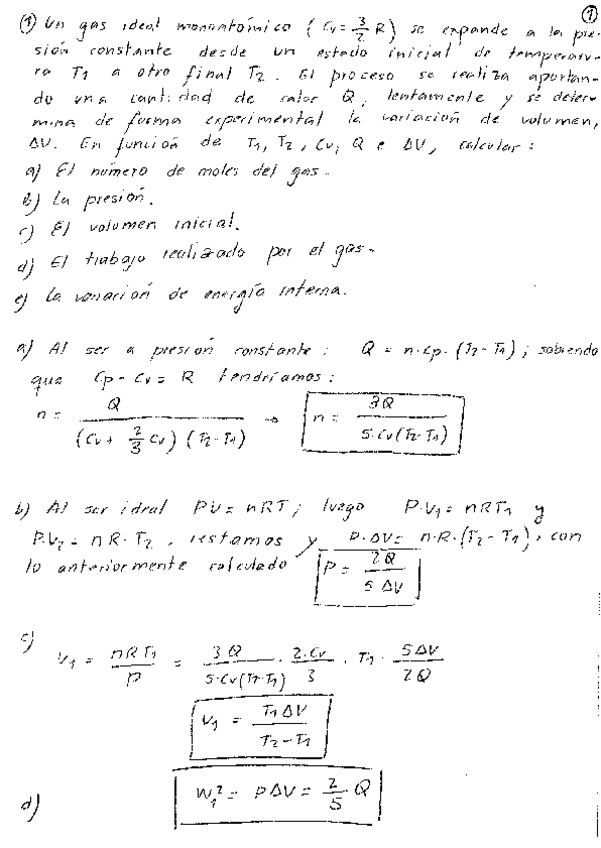 ①
① Un gas ideal monoatómico (Cv = 3/2 R) se expande a la pre-
sión constante desde un estado inicial de temperatu-
ra T1 a otro final T2. El proceso se realiza aportan-
do una cantidad de calor Q, lentamente y se deter-
mina de forma experimental la variación de volumen,
ΔV. En función de T1, T2, Cv, Q e ΔV, calcular:
a) El número de moles del gas.
b) La presión.
c) El volumen inicial.
d) El trabajo realizado por el gas.
e) La variación de energía interna.
a) Al ser a presión constante: Q = n·Cp·(T2-T1); sabiendo
que Cp - Cv = R tendríamos:
n = Q / (Cv + 2/3 Cv)(T2-T1) → n = 3Q / 5·Cv(T2-T1)
b) Al ser ideal PV = nRT; luego P·V1 = nRT1 y
P·V2 = nR·T2, restamos y P·ΔV = n·R·(T2-T1), con
lo anteriormente calculado P = 2Q / 5ΔV
c) V1 = nRT1 / P = 3Q / 5·Cv(T2-T1) · 2·Cv / 3 · T1 · 5ΔV / 2Q
V1 = T1ΔV / T2-T1
d) W₁² = PΔV = 2/5 Q